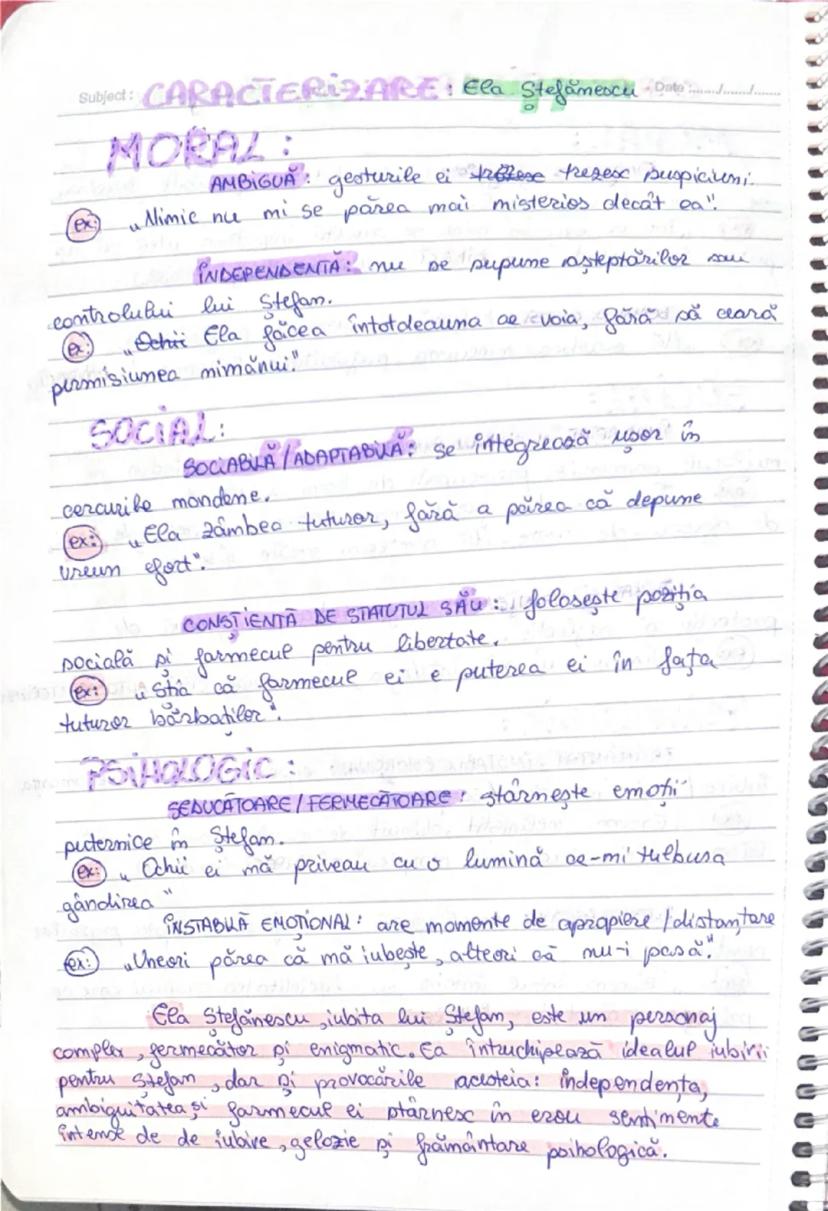 Subject: CARACTERIZARE: Ela Ștefănescu Date ......./......./.......
MORAL:
AMBIGUĂ: gesturile ei trezesc suspiciuni.
ex: „Nimic nu mi se părea mai misterios decât ea".
INDEPENDENTĂ: nu se supune așteptărilor sau
controlului lui Ștefan.
ex: „Ochii Ela făcea întotdeauna ce voia, fără să ceară
permisiunea nimănui."
SOCIAL:
SOCIABILĂ/ADAPTABILĂ: se integrează ușor în
cercurile mondene.
ex: „Ela zâmbea tuturor, fără a părea că depune
vreun efort".
CONȘTIENTĂ DE STATUTUL SĂU: folosește poziția
socială și farmecul pentru libertate.
ex: „Știa că farmecul ei e puterea ei în fața
tuturor bărbaților".
PSIHOLOGIC:
SEDUCĂTOARE/FERMECĂTOARE: stârnește emoții
puternice în Ștefan.
ex: „Ochii ei mă priveau cu o lumină ce-mi tulbura
gândirea"
INSTABILĂ EMOȚIONAL: are momente de apropiere/distanțare
ex: „Uneori părea că mă iubește, alteori că nu-i pasă."
Ela Ștefănescu, iubita lui Ștefan, este un personaj
complex, fermecător și enigmatic. Ea întruchipează idealul iubirii
pentru Ștefan, dar și provocările acesteia: independența,
ambiguitatea și farmecul ei stârnesc în erou sentimente
intense de de iubire, gelozie și frământare psihologică.